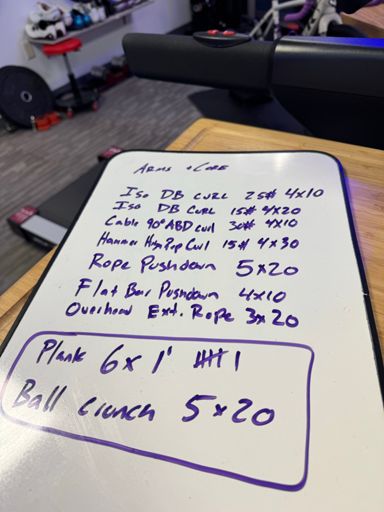 Arms + Core
Iso DB curl 25# 4x10
Iso DB Curl 15# 4x20
Cable 90° ABD curl 30# 4x10
Hammer High Pop Curl 15# 4x30
Rope Pushdown 5x20
Flat Bar Pushdown 4x10
Overhead Ext. Rope 3x20
Plank 6x1' 𝍸 |
Ball crunch 5x20